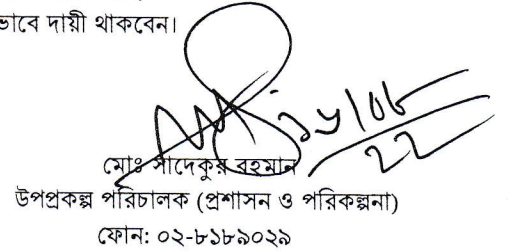 ভাবে দায়ী থাকবেন।
মোঃ সাদেকুর রহমান
উপপ্রকল্প পরিচালক (প্রশাসন ও পরিকল্পনা)
ফোন: ০২-৮১৮৯০২৯